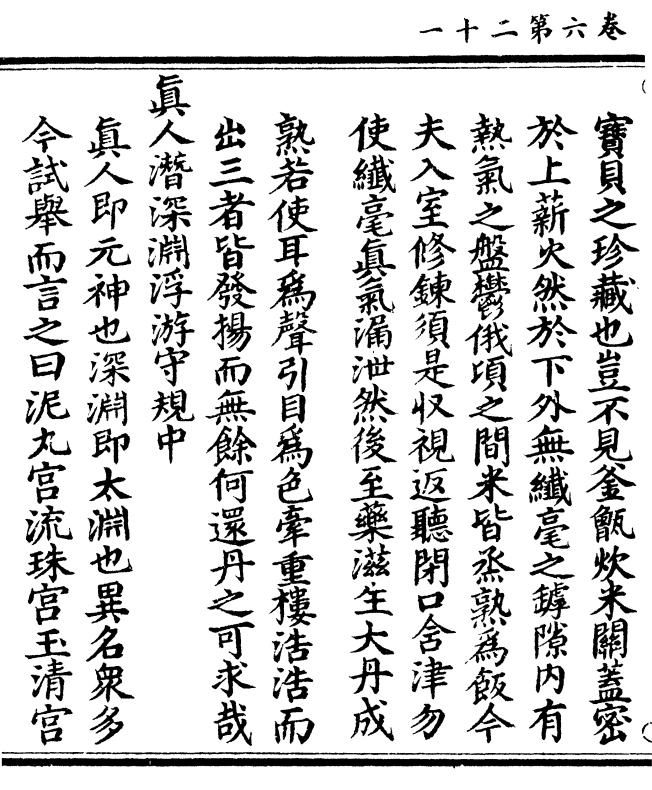 卷六第二十一
寶貝之珍藏也豈不見釜甑炊米關蓋密
於上薪火然於下外無纖毫之罅隙内有
熱氣之盤鬱俄頃之間米皆烝熟爲飯今
夫入室修鍊須是收視返聽閉口含津勿
使纖毫眞氣漏泄然後至藥滋生大丹成
熟若使耳爲聲引目爲色牽重樓浩浩而
出三者皆發揚而無餘何還丹之可求哉
眞人潛深淵浮游守規中
眞人即元神也深淵即太淵也異名衆多
今試舉而言之曰泥丸宮流珠宮玉清宮